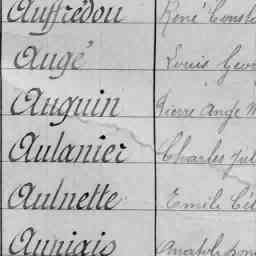 Auffredou René Const
Augé Louis Geor
Auguin Pierre Ange
Aulanier Charles Jul
Aulnette Emile Cél
Auniais Anatole